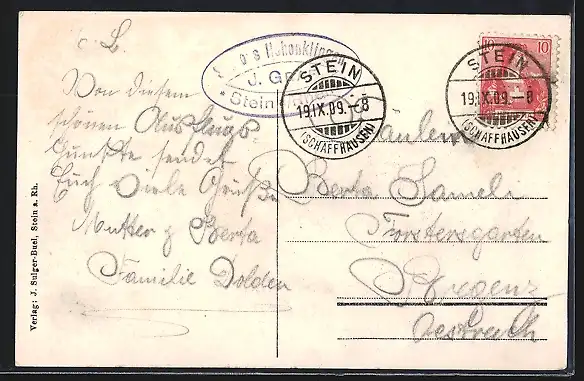 L.
Von diesem
schönen Ausflugs-
punkte sendet
Euch viele Grüße
Mutter & Berta
Familie Dolden
Verlag: J. Sulger-Buel, Stein a. Rh.
Hohenklingen
J. G
Stein
STEIN
19.IX.09.–8
(SCHAFFHAUSEN)
10 10
STEIN
19.IX.09.–8
(SCHAFFHAUSEN)
Fräulein
Berta Sameli
Forstersgarten
Bregenz
Oestreich